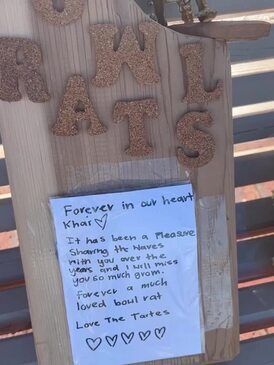 BOWL
RATS
Forever in our heart
Khai
It has been a Pleasure
Sharing the Waves
with you over the
years and I will miss
you so much grom.
Forever a much
loved bowl rat
Love The Tartes